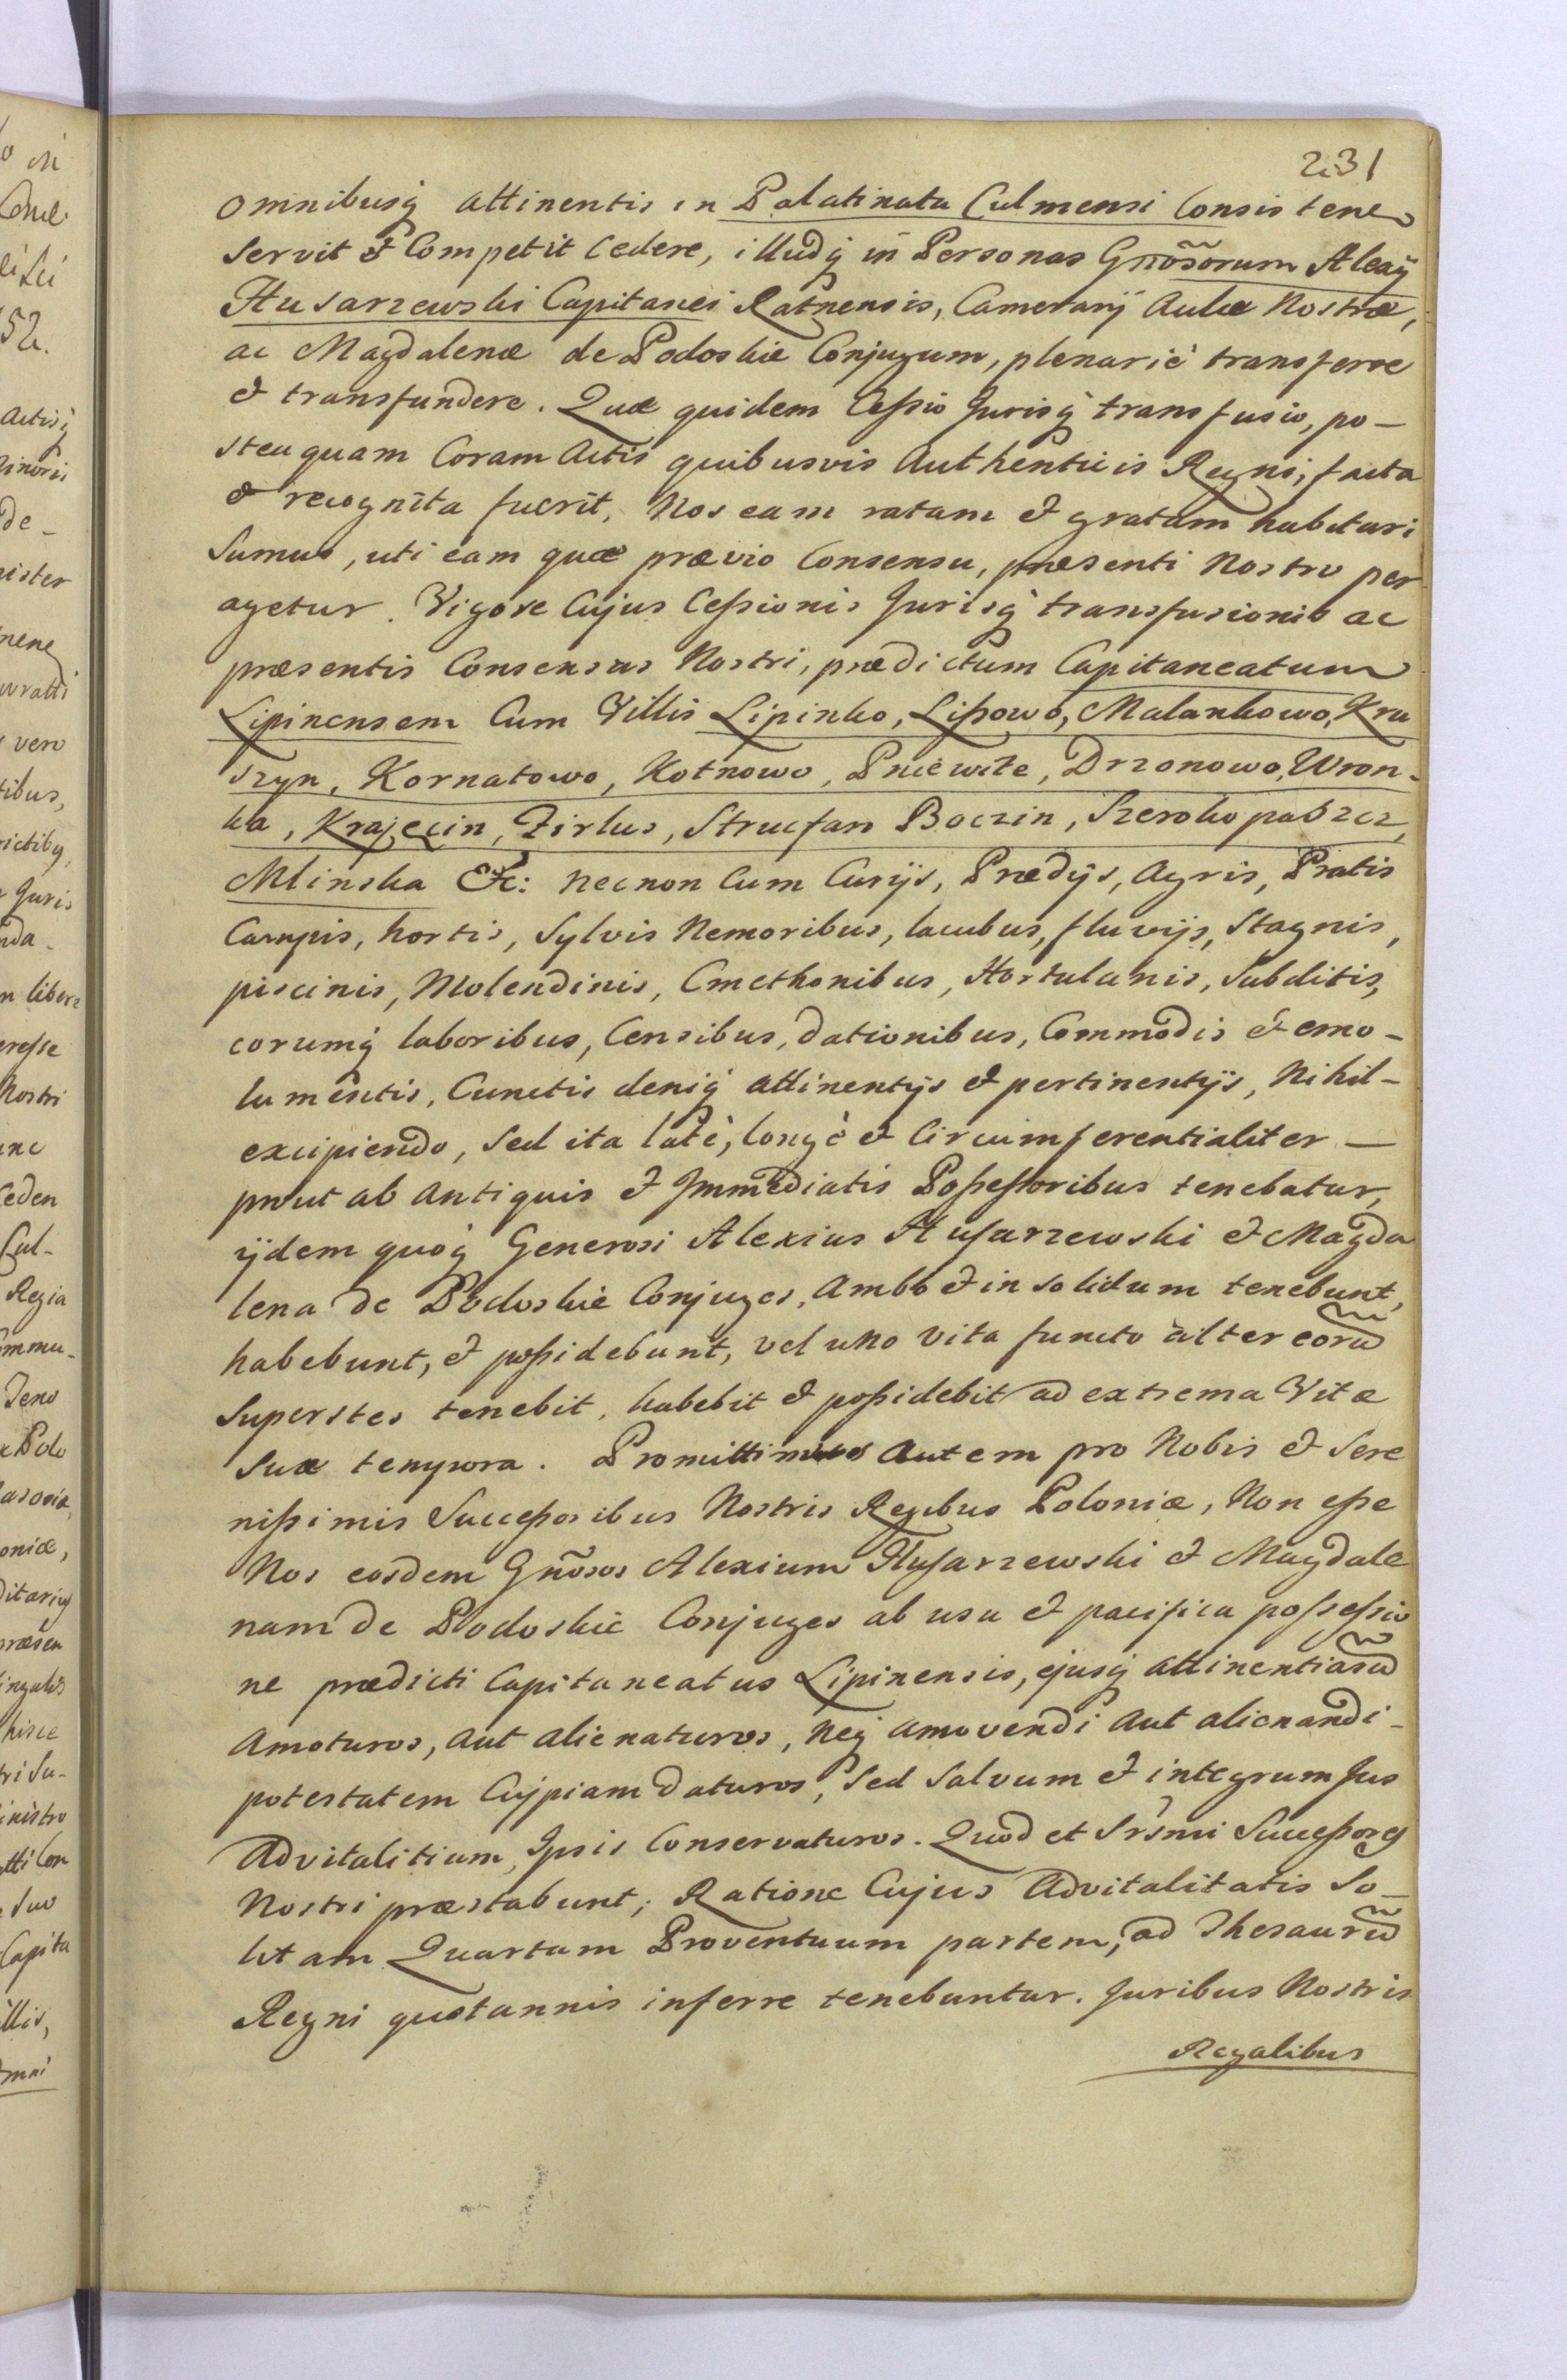 231
omnibusq́ attinentis in Palatinatu Culmensi Consistene
servit & Competit cedere, illudq́ in Personas Gñosorum Alexij
Husarzewski Capitanei Ratnensis, Camerarij Aulæ Nostræ,
ac Magdalenæ de Podoskie Conjugum, plenariè transferre
& transfundere. Quæ quidem Cessio Jurisq́ transfusio, po-
steaquam Coram Actis quibusvis Authenticis Regni, facta
& recognita fuerit, Nos eam ratam & gratam habituri
Sumus, uti eam quæ prævio Consensu, præsenti Nostro per
agetur. Vigore Cujus Cessionis Jurisq́ transfusionis ac
præsentis Consensus Nostri, prædictum Capitaneatum
Lipinensem Cum Villis Lipinko, Lissowo, Malankowo, Kru
szyn, Kornatowo, Kotnowo, Pniewite, Drzonowo, Wron-
ka, Krajęcin, Firlus, Strucfan Boczin, Szerokopaszcz,
Mlinska &c: necnon Cum Curijs, Prædijs, Agris, Pratis
Campis, hortis, Sylvis Nemoribus, lacubus, fluvijs, Stagnis,
piscinis, Molendinis, Cmethonibus, Hortulanis, Subditis,
eorumq́ laboribus, Censibus, dationibus, Commodis & emo-
lumentis, Cunctis deniq́ attinentijs & pertinentijs, Nihil-
excipiendo, Sed ita latè, longè & Circumferentialiter -
prout ab antiquis & Immediatis Possessoribus tenebatur,
ijdem quoq́ Generosi Alexius Husarzewski & Magda
lena de Podoskie Conjuges, Ambo & in solidum tenebunt,
habebunt, & possidebunt, vel uno vita functo alter eorũ
Superstes tenebit, habebit & possidebit ad extrema Vitæ
Suæ tempora. Promittimus Autem pro Nobis & Sere
nissimis Successoribus Nostris Regibus Poloniæ, Non esse
Nos eosdem Gñosos Alexium Husarzewski & Magdale
nam de Podoskie Conjuges ab usu & pacifica possessio
ne prædicti Capitaneatus Lipinensis, ejusq́ attinentiarũ
Amoturos, aut alienaturos, Neq́ amovendi Aut alienandi-
potestatem Cuipiam daturos, Sed Salvum & integrum Jus
Advitalitium Ipsis Conservaturos. Quod et Srsmi Successores
Nostri præstabunt; Ratione Cujus Advitalitatis So-
litam Quartam Proventuum partem, ad Thesaurũ
Regni quotannis inferre tenebuntur. Juribus Nostris
Regalibus